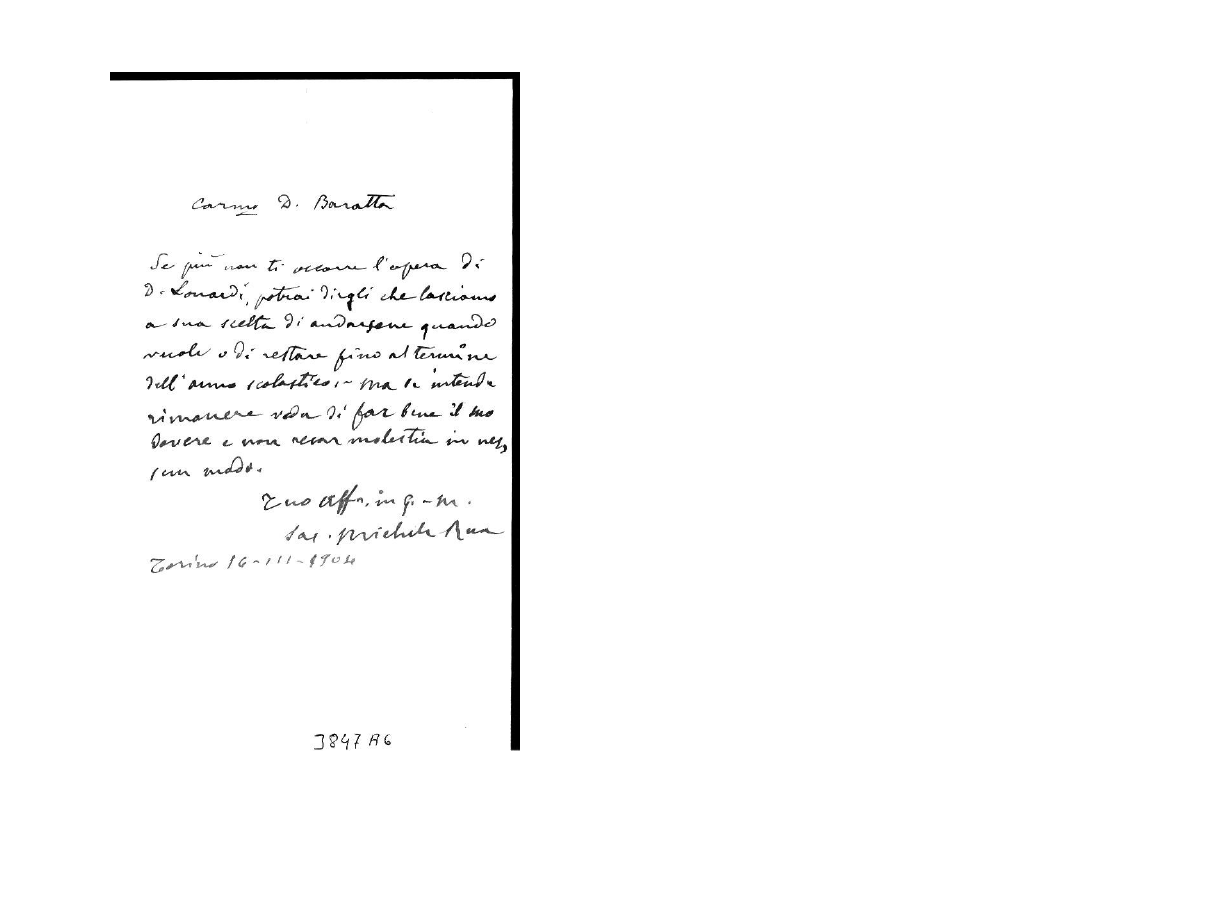 Carmo D. Baratta
Se più non ti occorre l'opera di
D. Lonardi, potrai dirgli che lasciamo
a sua scelta di andarsene quando
vuole o di restare fino al termine
dell'anno scolastico; - Ma se intende
rimanere veda di far bene il suo
dovere e non recar molestia in nes
sun modo.
Tuo aff. in G. - M.
Sac. Michele Rua
Torino 16-III-1904
3847 A6